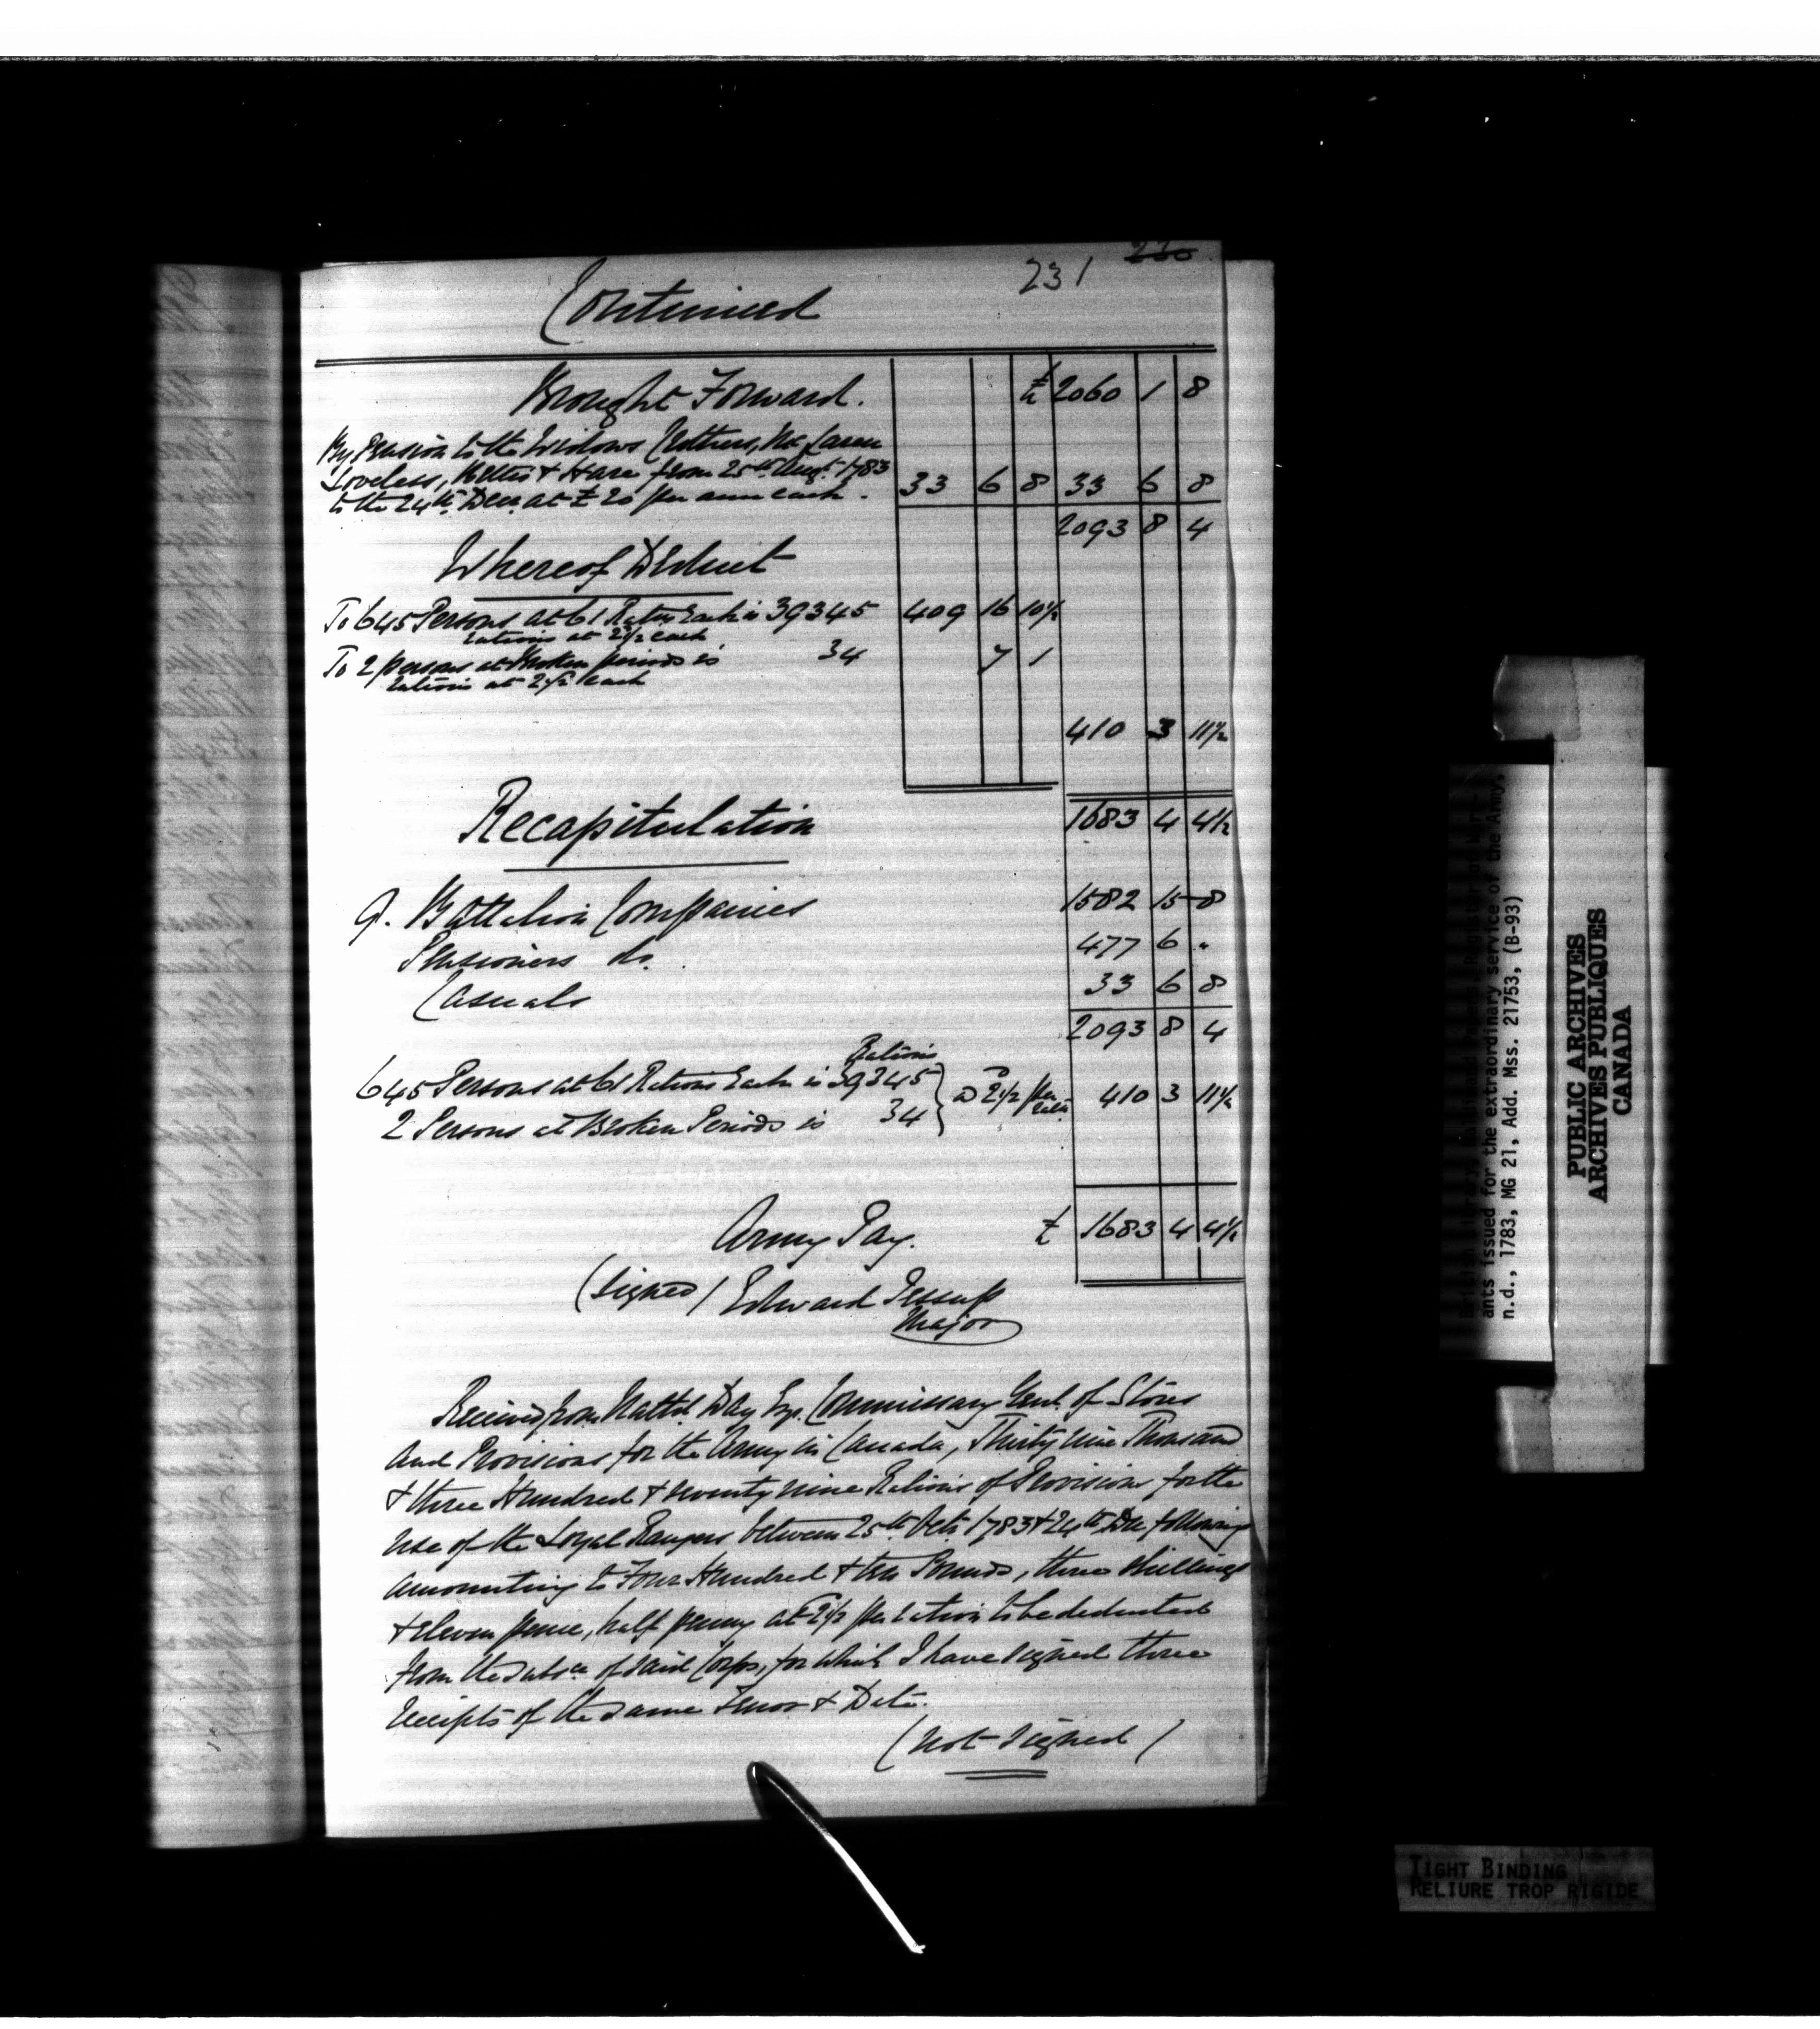 231 230
Continued
Brought Forward. £ 2060 1 8
By Pension to the Widows Cruthers, McLaren
Loveless, & Hare from 25th Augt. 1783
to the 24th Decr. at £ 20 per ann each. 33 6 8 33 6 8
2093 8 4
Whereof Deduct
To 645 Persons at 61 Rations Each is 39345 409 16 10½
rations at 2½ each
To 2 persons at Broken periods is 34 7 1
rations at 2½ each
410 3 11½
1683 4 4½
Recapitulation
9. Battalion Companies 1582 15 8
Pensioners do. 477 6 "
Casuals 33 6 8
2093 8 4
Rations
645 Persons at 61 Rations Each is 39345
2 Persons at Broken Periods is 34
@ 2½ per ration 410 3 11½
Army Pay. £ 1683 4 4½
(Signed) Edward Jessup
Major
Received from Nathl. Day Esq. Commissary Genl. of Stores
and Provisions for the Army in Canada, Thirty nine Thousand
& three Hundred & seventy nine Rations of Provisions for the
use of the Loyal Rangers between 25th Octr. 1783 & 24th Dec following
amounting to Four Hundred & ten Pounds, three shillings
& eleven pence, half penny at 2½ per ration to be deducted
from the subsce. of said Corps, for which I have signed three
receipts of the same Tenor & Date.
(Not signed)
British Library, Haldimand Papers, Register of Warr-
ants issued for the extraordinary service of the Army,
n.d., 1783, MG 21, Add. Mss. 21753, (B-93)
PUBLIC ARCHIVES
ARCHIVES PUBLIQUES
CANADA
TIGHT BINDING
RELIURE TROP RIGIDE